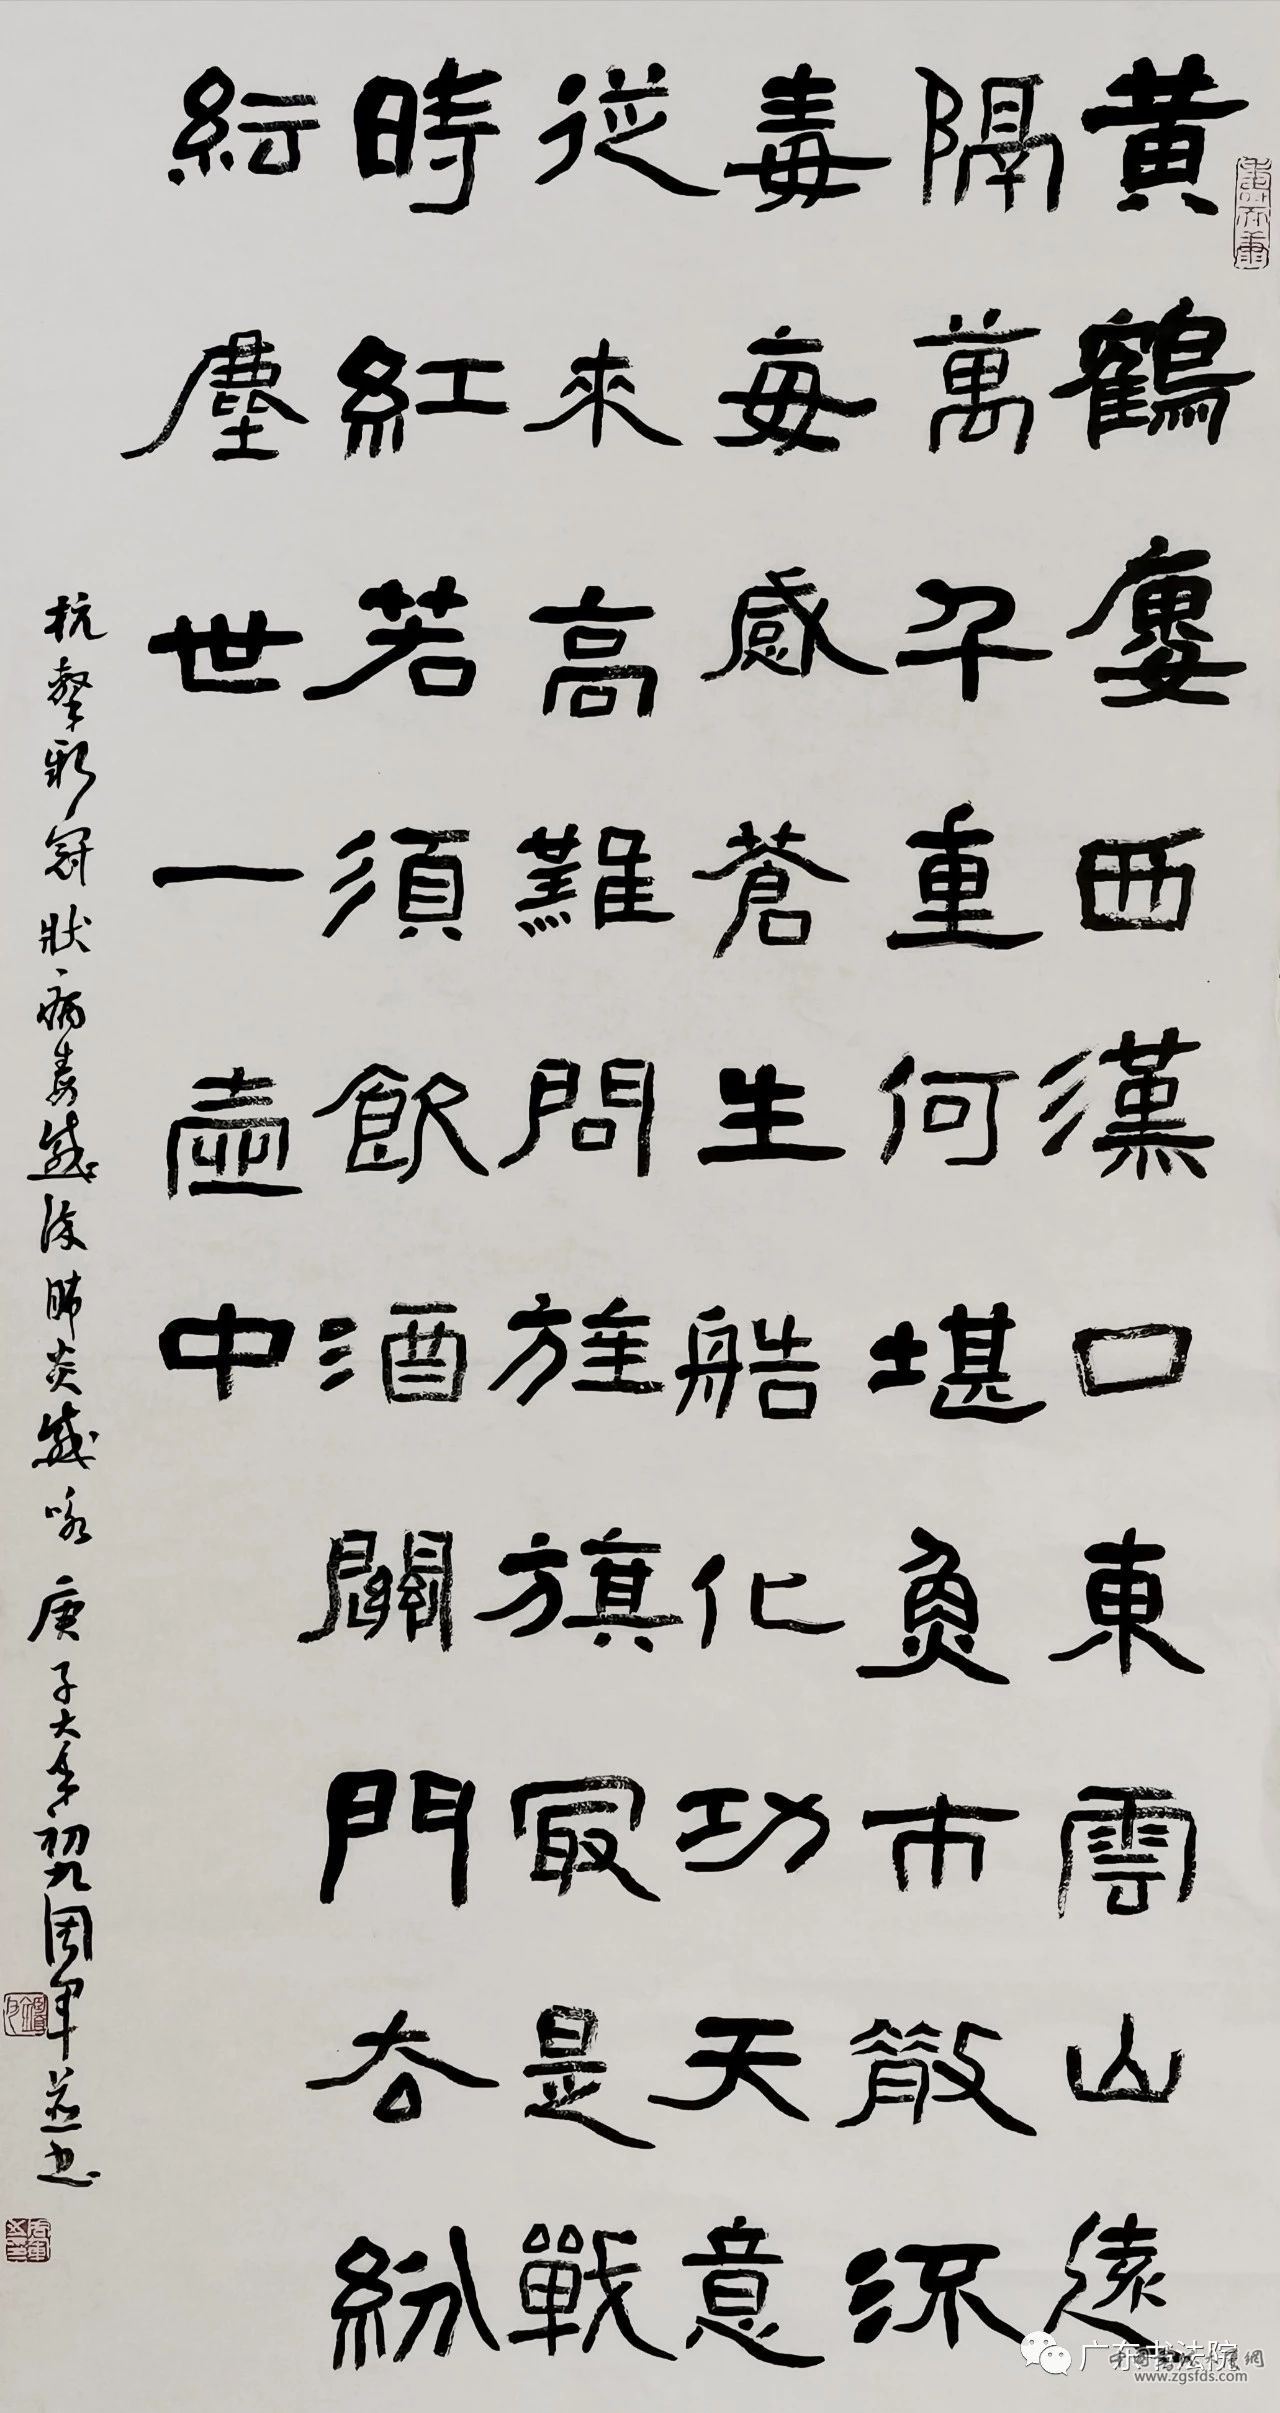 黄鶴廔西漢口東雲山遠
隔萬千重何堪魚市散流
毒每感蒼生艁化功天意
從來高難問旌旗冣是戰
時紅若須飲酒關門去紛
紜塵世一壺中
抗擊新冠狀病毒感染肺炎感咏庚子大年初九周軍並書
广东书法院
www.zgsfds.com